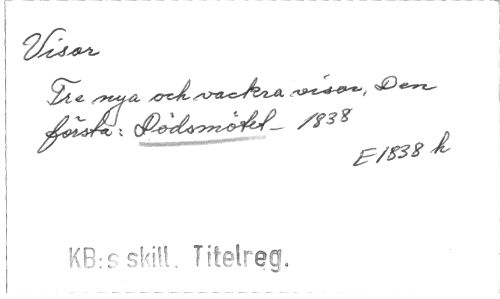 Visor
Tre nya och vackra visor. Den
första: Dödsmötet_ 1838
E1838 h
KB:s skill. Titelreg.